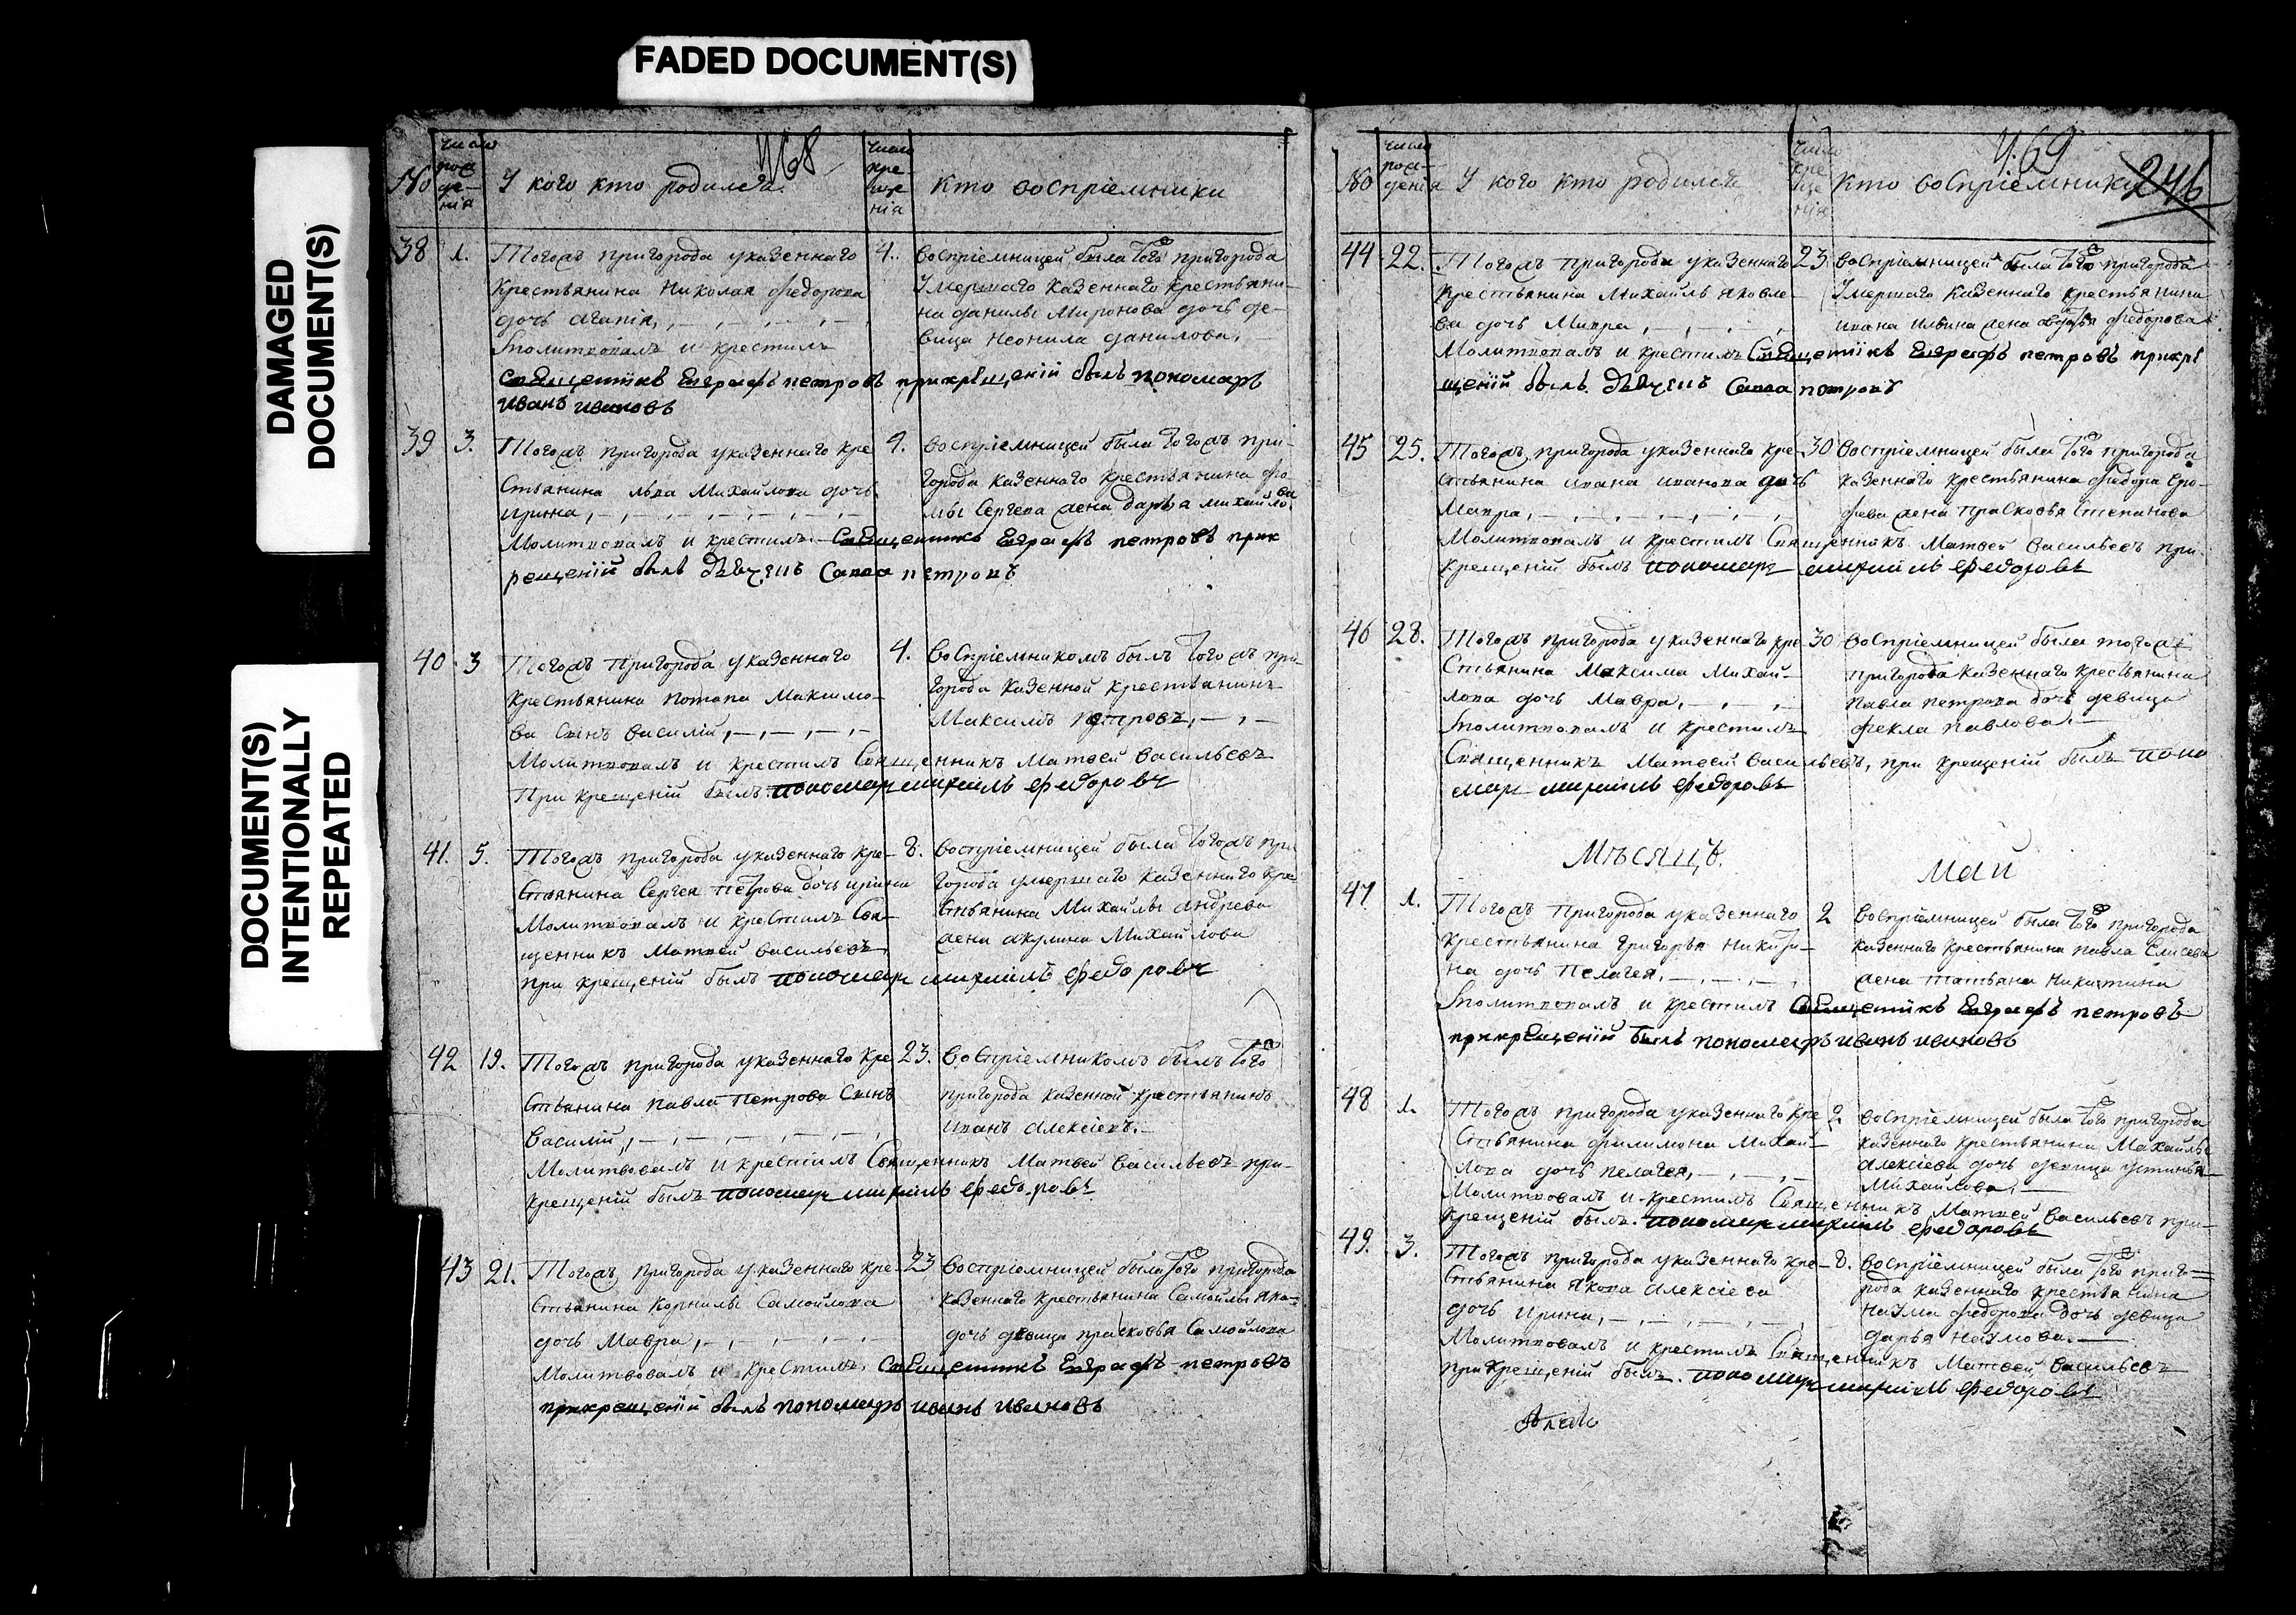 FADED DOCUMENT(S)
DAMAGED
DOCUMENT(S)
DOCUMENT(S)
INTENTIONALLY
REPEATED
468
№
число
рождения
У кого кто родился
число
крещенія
Кто воспріемники
38
1.
Тогожъ пригорода указеннаго
крестьянина Николая Федорова
дочь Агапія,
Молитвовалъ и крестилъ
Священникъ Евграфъ петровъ прикрещеній былъ пономарь
иванъ ивановъ
4.
воспріемницей была того пригорода
умершаго казеннаго крестьяни-
на данилы Миронова дочь де-
вица Неонила данилова,
39
3.
Тогожъ пригорода указеннаго кре
стьянина льва Михайлова дочь
ирина,
Молитвовалъ и крестилъ Священникъ Евграфъ петровъ прик
рещеній былъ дьячецъ Савва петровъ
4.
воспріемницей была тогожъ при-
города казеннаго крестьянина фо
мы Сергева жена дарья михайлова
40
3
Тогожъ пригорода указеннаго
крестьянина потапа Максимо-
ва Сынъ Василій,
Молитвовалъ и крестилъ Священникъ Матвей Васильевъ
При крещеній былъ пономарь михаилъ федоровъ
4.
воспріемникомъ былъ тогожъ при-
города казенной крестьянинъ
Максимъ петровъ,
41.
5.
Тогожъ пригорода указеннаго кре-
стьянина Сергея петрова дочь ирина
Молитвовалъ и крестилъ Свя-
щенникъ Матвей Васильевъ
при крещеній былъ пономарь михаилъ федоровъ
8.
воспріемницей была тогожъ при
города умершаго казеннаго кре-
стьянина Михайлы андрева
жена акулина Михайлова
42
19.
Тогожъ пригорода указеннаго кре
стьянина павла петрова Сынъ
Василій,
Молитвовалъ и крестилъ Священникъ Матвей Васильевъ при-
крещеній былъ пономарь михаилъ федоровъ
23.
воспріемникомъ былъ того
пригорода казенной крестьянинъ
иванъ алексіевъ.
43
21.
Тогожъ пригорода указеннаго кре-
стьянина корнилы Самойлова
дочь Мавра,
Молитвовалъ и крестилъ Священникъ Евграфъ петровъ
прикрещеній былъ пономарь иванъ ивановъ
23
воспріемницей была того пригорода
казеннаго крестьянина Самойлы
дочь девица прасковья Самойлова
469
246
№
число
рождения
У кого кто родился
число
крещенія
Кто воспріемники
44
22.
Тогожъ пригорода указеннаго
крестьянина Михайлы яковле-
ва дочь Мавра,
Молитвовалъ и крестилъ Священникъ Евграфъ петровъ прикре
щеній былъ дьячецъ Савва петровъ
23
воспріемницей была того пригорода
умершаго казеннаго крестьянина
ивана ильина жена авдотья федорова
45
25.
Тогожъ пригорода указеннаго кре-
стьянина ивана иванова дочь
Мавра,
Молитвовалъ и крестилъ Священникъ Матвей Васильевъ при-
крещеній былъ пономарь михаилъ федоровъ
30
воспріемницей была того пригорода
казеннаго крестьянина федора Еро-
фева жена прасковья Степанова
46
28.
Тогожъ пригорода указеннаго кре
стьянина Максима Михай-
лова дочь Мавра,
Молитвовалъ и крестилъ
Священникъ Матвей Васильевъ, при крещеній былъ поно
марь михаилъ федоровъ
30
воспріемницей была тогожъ
пригорода казеннаго крестьянина
павла петрова дочь девица
фекла павлова.
Мѣсяцъ.
Май
47
1.
Тогожъ пригорода указеннаго
крестьянина григорья никити-
на дочь пелагея,
Молитвовалъ и крестилъ Священникъ Евграфъ петровъ
прикрещеній былъ пономарь иванъ ивановъ
2
воспріемницей была того пригорода
казеннаго крестьянина павла Елисева
жена татьяна никитина
48
1.
Тогожъ пригорода указеннаго кре
стьянина филимона Михай-
лова дочь пелагея,
Молитвовалъ и крестилъ Священникъ Матвей Васильевъ при-
крещеній былъ пономарь михаилъ федоровъ
2
воспріемницей была того пригорода
казеннаго крестьянина Михайлы
алексіева дочь девица устинья
Михайлова,
49.
3.
Тогожъ пригорода указеннаго кре-
стьянина якова алексіева
дочь ирина,
Молитвовалъ и крестилъ Священникъ Матвей Васильевъ
при крещеній былъ пономарь михаилъ федоровъ
8.
воспріемницей была того приго-
рода казеннаго крестьянина
наума федорова дочь девица
дарья наумова.